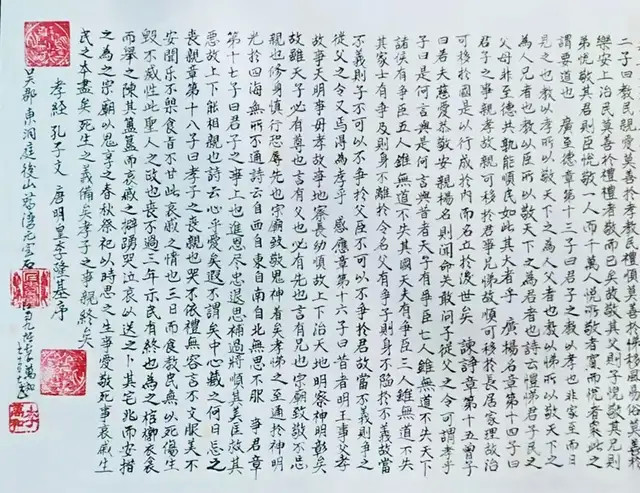 二子曰教民親愛莫善於孝教民禮順莫善於悌移風易俗莫善於
樂安上治民莫善於禮禮者敬而已矣故敬其父則子悅敬其兄則
弟悅敬其君則臣悅敬一人而千萬人悅所敬者寡而悅者眾此之
謂要道也 廣至德章第十三子曰君子之教以孝也非家至而日
見之也教以孝所以敬天下之為人父者也教以悌所以敬天下之
為人兄者也教以臣所以敬天下之為人君者也詩云愷悌君子民之
父母非至德其孰能順民如此其大者乎 廣揚名章第十四子曰
君子之事親孝故可移於君事兄悌故順可移於長居家理故治
可移於國是以行成於內而名立於後世矣 諫諍章第十五曾子
曰若夫慈愛恭敬安親揚名則聞命矣敢問子從父之令可謂孝乎
子曰是何言與是何言與昔者天子有爭臣七人雖無道不失天下
諸侯有爭臣五人雖無道不失其國大夫有爭臣三人雖無道不失
其家士有爭友則身不離於令名父有爭子則身不陷於不義故當
不義則子不可以不爭於父臣不可以不爭於君故當不義則爭之
從父之令又焉得為孝乎 感應章第十六子曰昔者明王事父孝
故事天明事母孝故事地察長幼順故上下治天地明察神明彰矣
故雖天子必有尊也言有父也必有先也言有兄也宗廟致敬不忘
親也修身慎行恐辱先也宗廟致敬鬼神著矣孝悌之至通於神明
光於四海無所不通詩云自西自東自南自北無思不服 事君章
第十七子曰君子之事上也進思盡忠退思補過將順其美匡救其
惡故上下能相親也詩云心乎愛矣遐不謂矣中心藏之何日忘之
喪親章第十八子曰孝子之喪親也哭不依禮無容言不文服美不
安聞樂不樂食旨不甘此哀戚之情也三日而食教民無以死傷生
毀不滅性此聖人之政也喪不過三年示民有終也為之棺槨衣衾
而舉之陳其簠簋而哀戚之擗踴哭泣哀以送之卜其宅兆而安措
之為之宗廟以鬼享之春秋祭祀以時思之生事愛敬死事哀戚生
民之本盡矣死生之義備矣孝子之事親終矣
孝經 孔子文 唐明皇李隆基序
吳郡東洞庭後山